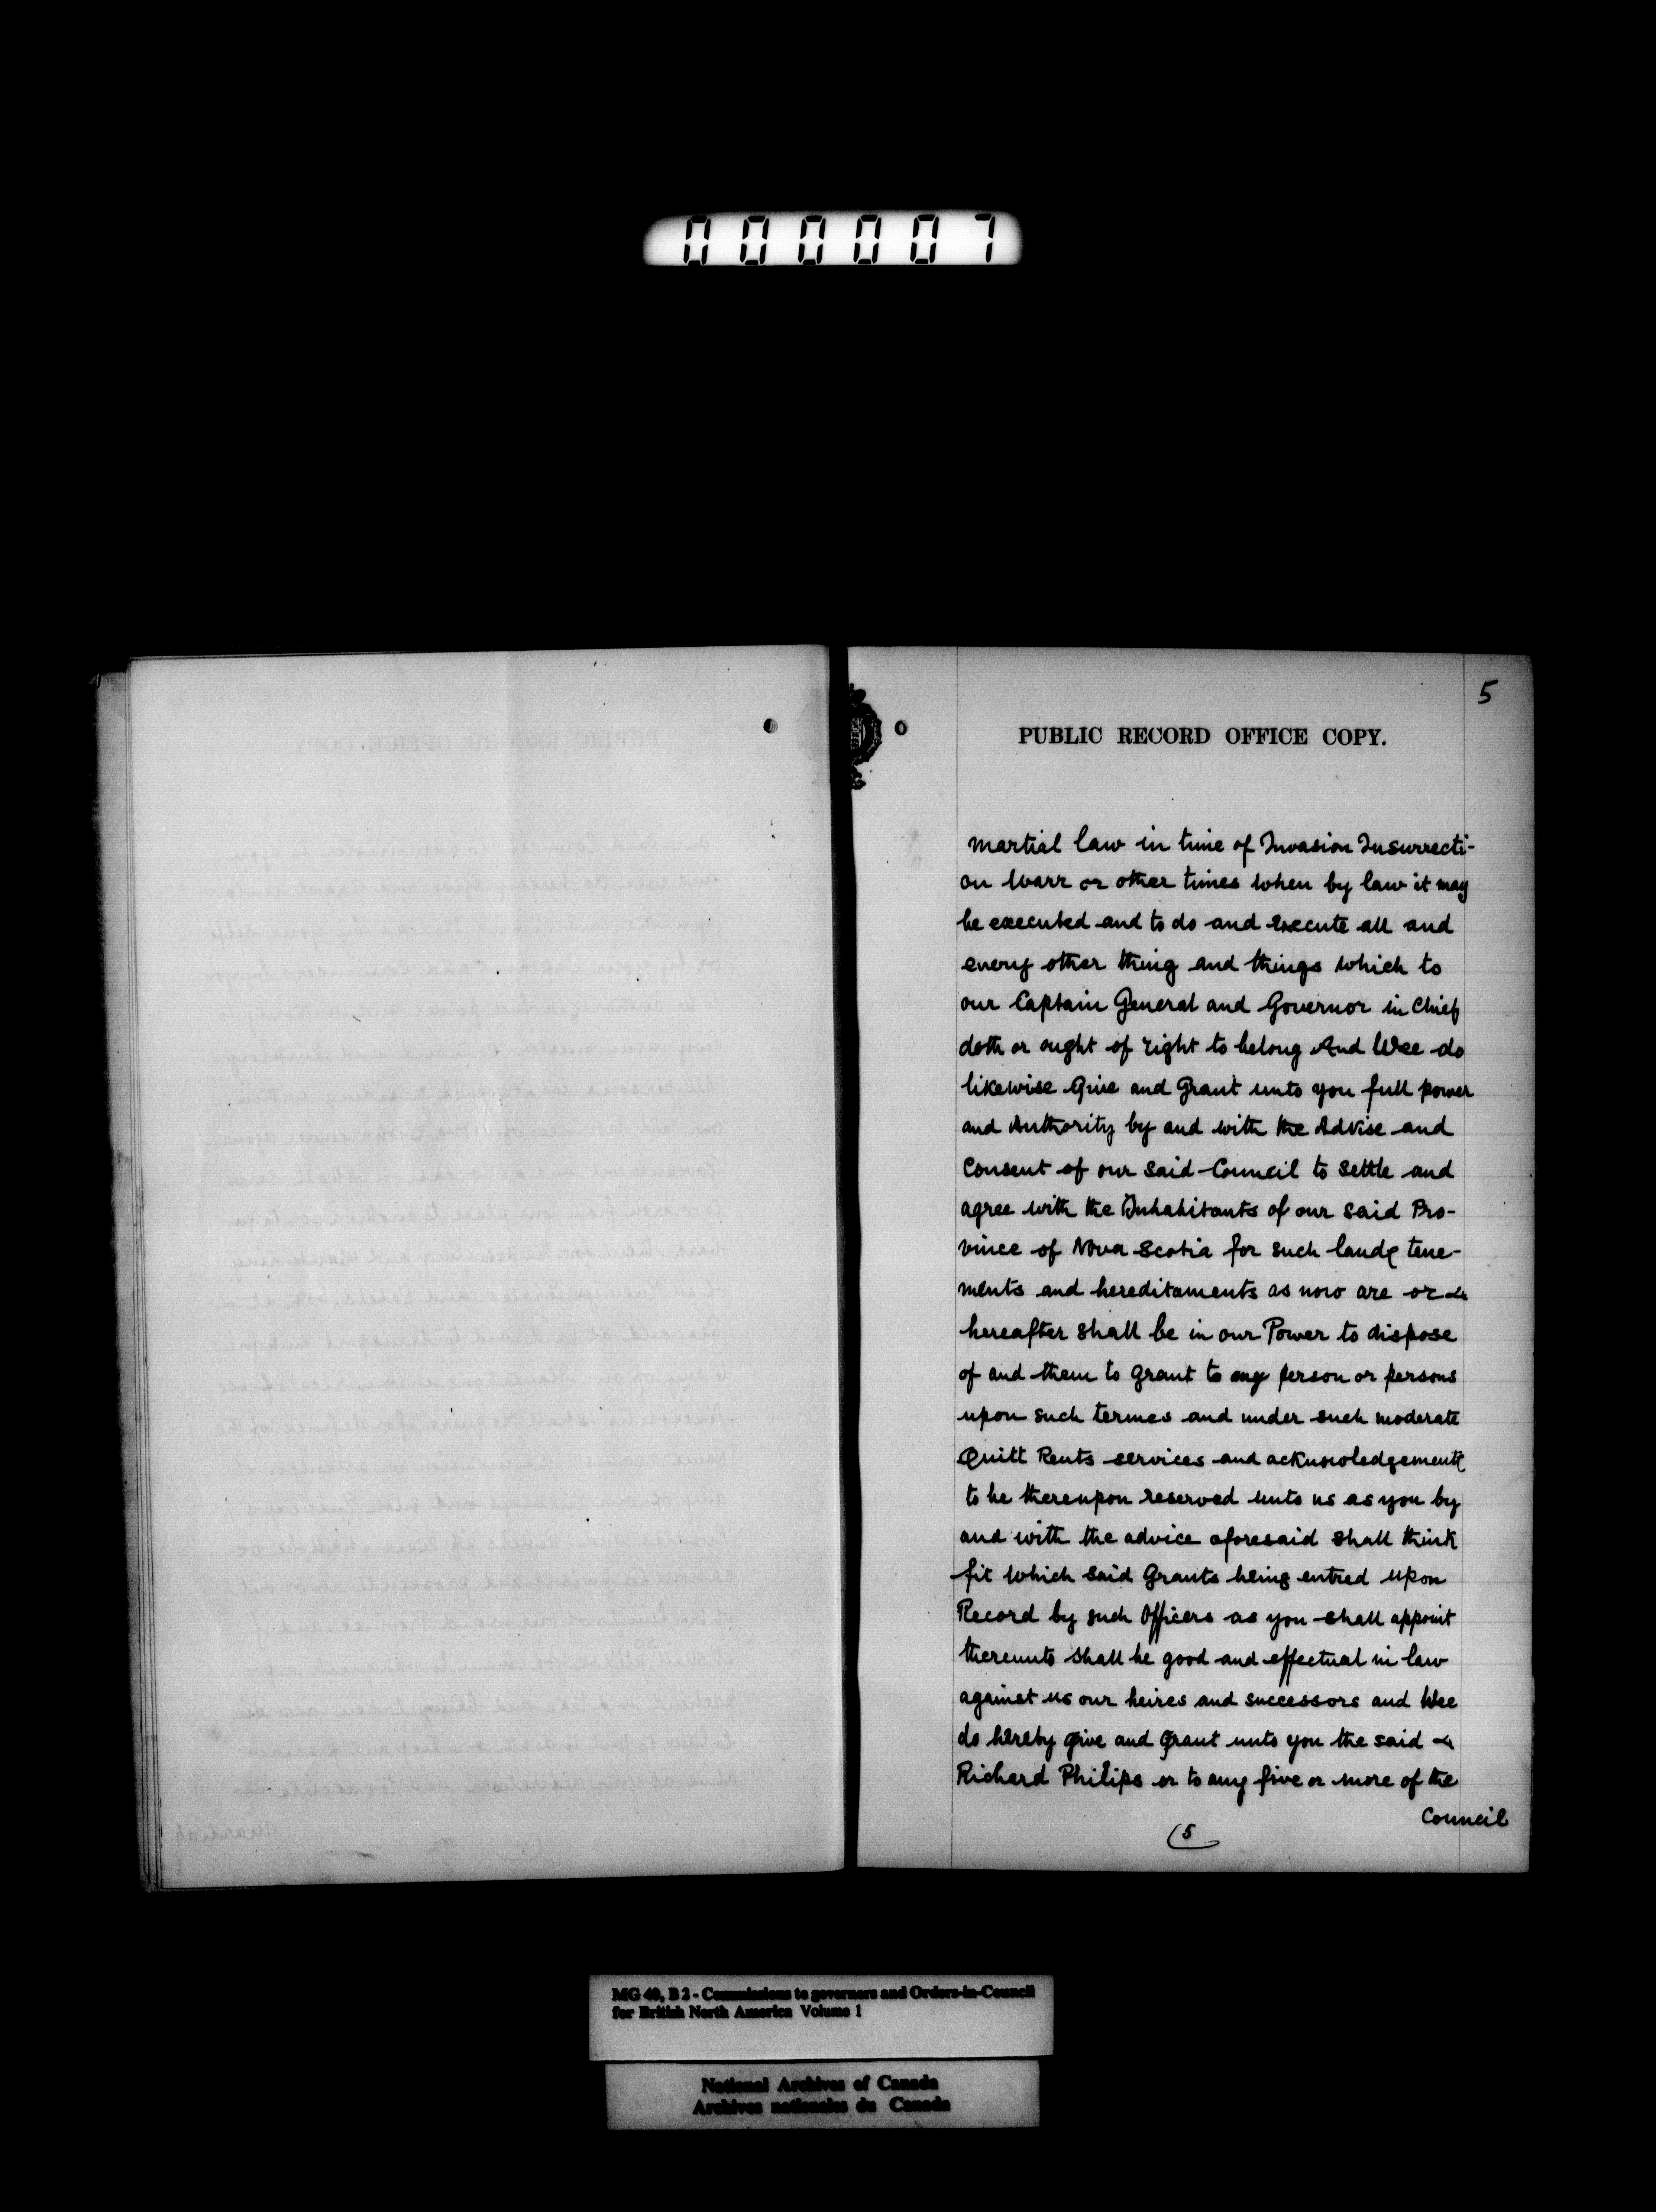 000007
5
PUBLIC RECORD OFFICE COPY.
martial law in time of Invasion Insurrecti-
on Warr or other times when by law it may
be executed and to do and execute all and
every other thing and things which to
our Captain General and Governor in Chief
doth or ought of right to belong And Wee do
likewise Give and Grant unto you full power
and Authority by and with the Advise and
Consent of our said Council to settle and
agree with the Inhabitants of our said Pro-
vince of Nova Scotia for such lands tene-
ments and hereditaments as now are or
hereafter shall be in our Power to dispose
of and them to grant to any person or persons
upon such termes and under such moderate
Quitt Rents services and acknowledgements
to be thereupon reserved unto us as you by
and with the advice aforesaid shall think
fit which said Grants being entred upon
Record by such Officers as you shall appoint
thereunto shall be good and effectual in law
against us our heires and successors and Wee
do hereby give and Grant unto you the said
Richard Philips or to any five or more of the
Council
(5
MG 40, B 2 - Commissions to governors and Orders-in-Council
for British North America Volume 1
National Archives of Canada
Archives nationales du Canada